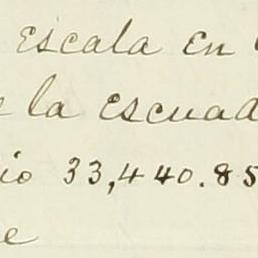 Escala en
e la escuad
io 33,440.85
e